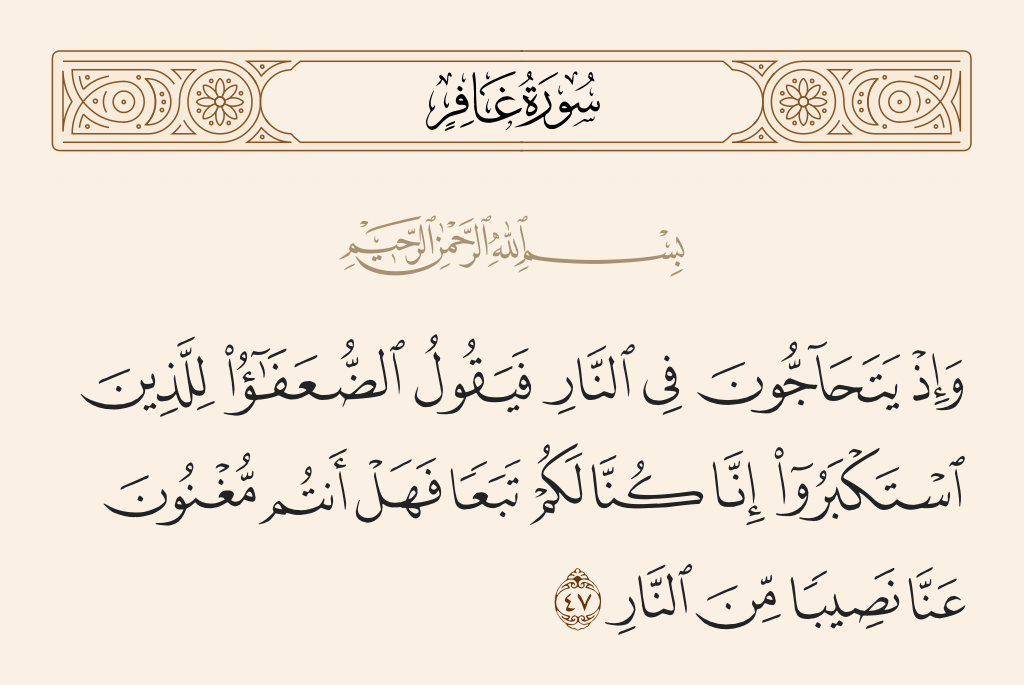 سُورَةُ غَافِرٍ
بِسْمِ ٱللَّهِ ٱلرَّحْمَٰنِ ٱلرَّحِيمِ
وَإِذْ يَتَحَآجُّونَ فِى ٱلنَّارِ فَيَقُولُ ٱلضُّعَفَٰٓؤُا۟ لِلَّذِينَ
ٱسْتَكْبَرُوٓا۟ إِنَّا كُنَّا لَكُمْ تَبَعًا فَهَلْ أَنتُم مُّغْنُونَ
عَنَّا نَصِيبًا مِّنَ ٱلنَّارِ ٤٧